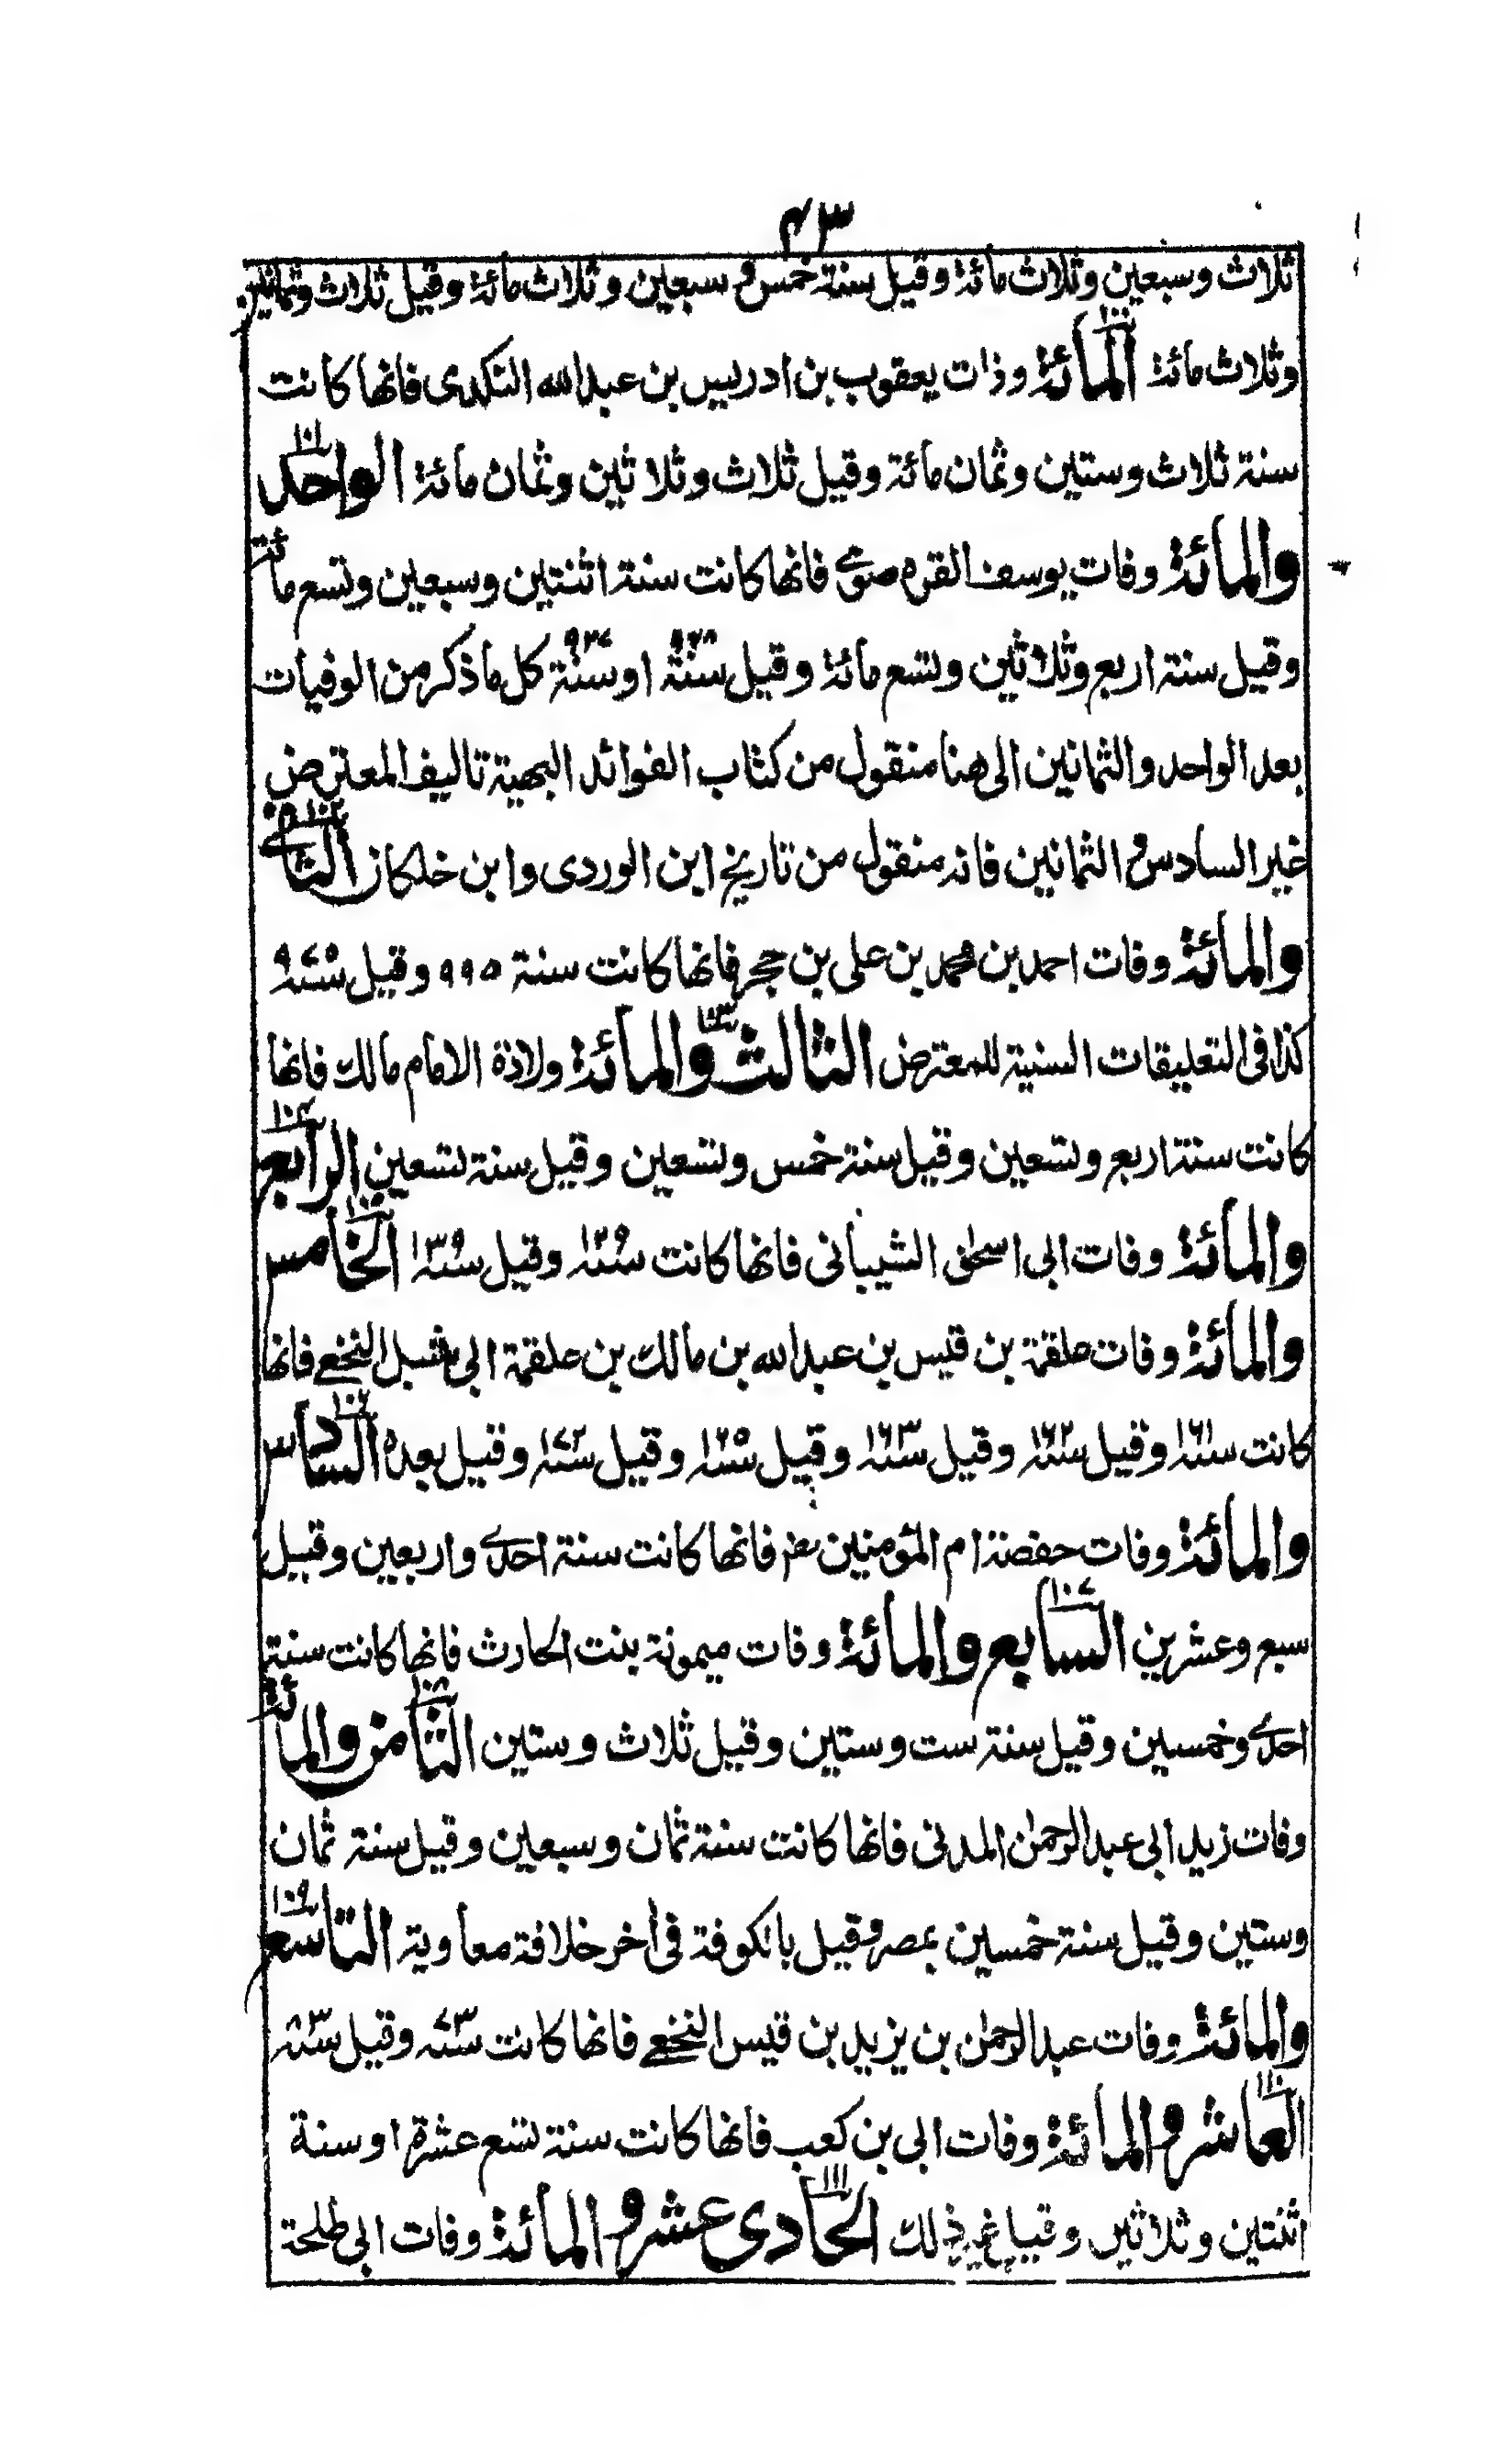 ٤٣
ثلاث وسبعين وثلاث مائة وقيل سنة خمس وسبعين وثلاث مائة وقيل ثلاث وثمانين
وثلاث مائة المائة ١٠٠ وذات يعقوب بن ادريس بن عبد الله النكدى فانها كانت
سنة ثلاث وستين وثمان مائة وقيل ثلاث وثلاثين وثمان مائة الواحد ١٠١
والمائة وفات يوسف القره صوى فانها كانت سنة اثنتين وسبعين وتسع مائة
وقيل سنة اربع وثلاثين وتسع مائة وقيل سنة ٩٣٨ او سنة ٩٣٧ كل ما ذكر من الوفيات
بعد الواحد والثمانين الى هنا منقول من كتاب الفوائد البهية تاليف المعترض
غير السادس والثمانين فانه منقول من تاريخ ابن الوردى وابن خلكان الثانى ١٠٢
والمائة وفات احمد بن محمد بن على بن حجر فانها كانت سنة ٩٩٥ وقيل سنة ٩٧٥
كذا فى التعليقات السنية للمعترض الثالث والمائة ١٠٣ ولادة الامام مالك فانها
كانت سنة اربع وتسعين وقيل سنة خمس وتسعين وقيل سنة تسعين الرابع ١٠٤
والمائة وفات ابى اسحٰق الشيبانى فانها كانت سنة ١٢٩ وقيل سنة ١٣٩ الخامس ١٠٥
والمائة وفات علقمة بن قيس بن عبد الله بن مالك بن علقمة ابى شبل النخعے فانها
كانت سنة ١٦١ وقيل سنة ١٦٢ وقيل سنة ١٦٣ وقيل سنة ١٦٥ وقيل سنة ١٧٢ وقيل بعده السادس ١٠٦
والمائة وفات حفصة ام المؤمنين رض فانها كانت سنة احدے واربعين وقيل
سبع وعشرين السابع والمائة ١٠٧ وفات ميمونة بنت الحارث فانها كانت سنة
احدے وخمسين وقيل سنة ست وستين وقيل ثلاث وستين الثامن والمائة ١٠٨
وفات زيد ابى عبد الرحمٰن المدنى فانها كانت سنة ثمان وسبعين وقيل سنة ثمان
وستين وقيل سنة خمسين بمصر وقيل بالكوفة فى أخر خلافة معاوية التاسع ١٠٩
والمائة وفات عبد الرحمٰن بن يزيد بن قيس النخعے فانها كانت سنة ٧٣ وقيل سنة ٨٣
العاشر والمائة ١١٠ وفات ابى بن كعب فانها كانت سنة تسع عشرة او سنة
اثنتين وثلاثين وقيل غير ذلك الحادى عشر والمائة ١١١ وفات ابى طلحة